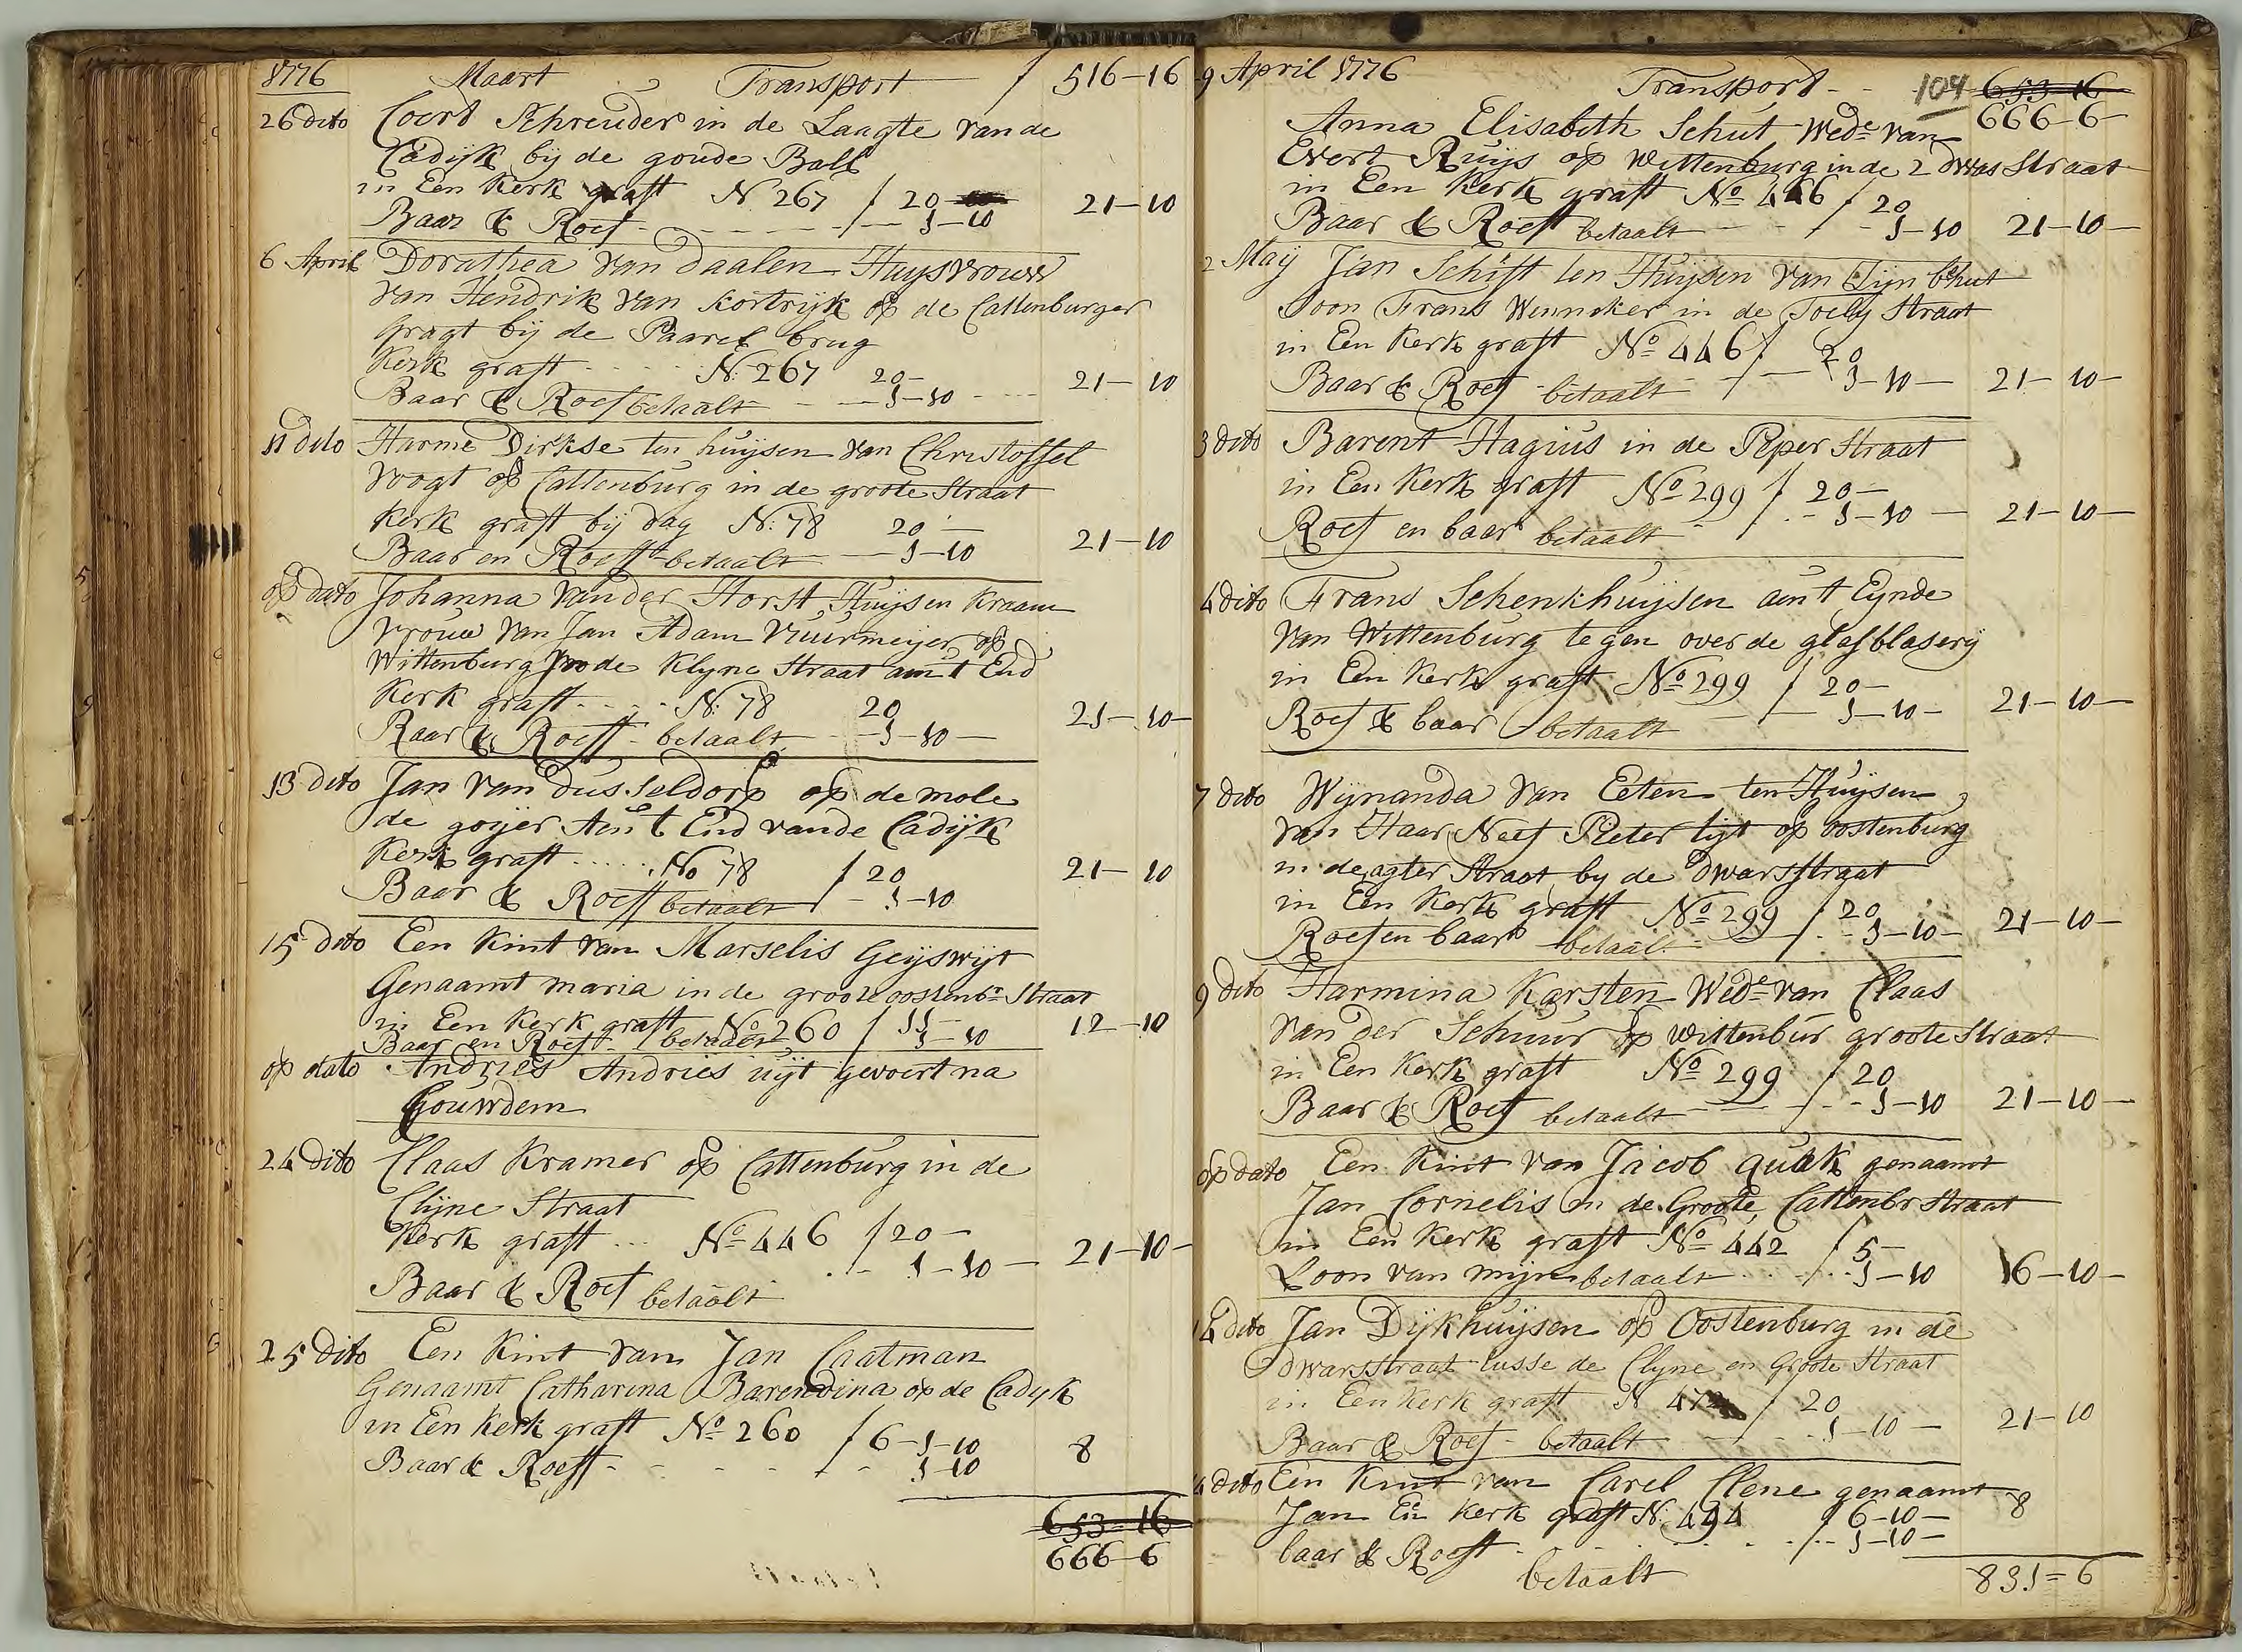 1776 Maart Transport f 516-16
26 dito Coert Schreuder in de Laagte van de
Cadijk bij de goude Ball
in Een Kerk graft N 267 f 20
Baar & Roef - - - 1-10 21-10
6 April Dorathea van Daalen Huysvrouw
van Hendrik van Kortrijk op de Cattenburger
gragt bij de Paarel brug
Kerk graft N: 267 20-
Baar & Roef betaalt - 1-10 21-10
11 dito Harme Dirkse ten huijsen van Christoffel
Voogt op Cattenburg in de groote Straat
Kerk graft bij dag N: 78 20-
Baar en Roeft betaalt - 1-10 21-10
op dato Johanna van der Horst Huijsen Kraam
vrouw van Jan Adam Vuurmeijer op
Wittenburg in de Klyne Straat aan t End
Kerk graft N: 78 20
Baar & Roeff betaalt - 1-10- 21-10-
13 dito Jan van dusseldorp op de mole
de goijer Aan t End vande Cadijk
Kerk graft No 78 f 20
Baar & Roeff betaalt f - 1-10 21-10
15 dito Een Kint van Marselis Geijswijt
Genaamt maria in de groote oostenbr Straat
in Een Kerk graft No 260 f 11-
Baar en Roeft betaalt 1-10 12-10
op dato Andries Andries uijt gevoert na
Gouwdem
24 dito Claas Kramer op Cattenburg in de
Clijne Straat
Kerk graft No 446 f 20-
1-10- 21-10-
Baar & Roef betaalt
25 dito Een Kint van Jan Caatman
Genaamt Catharina Barendina op de Cadijk
in Een Kerk graft No 260 f 6-1-10
Baar & Roeff - - - 1-10 8
653-16
666-6
9 April 1776 Transport - - 104 653-16
666-6-
Anna Elisabeth Schut Wede van
Evert Ruijs op Wittenburg in de 2 dwas Straat
in Een Kerk graft No 446 f 20
Baar & Roeft betaalt - - 1-10 21-10-
2 Maij Jan Schift ten Huijsen van Sijn
Soon Frans Winneker in de Straat
in Een Kerk graft No 446 f 20
Baar & Roef betaalt - 1-10- 21-10-
3 dito Barent Hagius in de Peper Straat
in Een Kerk graft No 299 f 20-
Roef en baar betaalt - 1-10- 21-10-
4 dito Frans Schenkhuijsen aan t Eynde
van Wittenburg tegen over de glasblaserij
in Een Kerk graft No 299 f 20-
Roef & baar betaalt - 1-10- 21-10-
7 dito Wijnanda van Eeten ten Huijsen
van Haar Neef Pieter lijt op oostenburg
in de agter Straat by de dwarsstraat
in Een Kerk graft No 299 f 20
Roef en baar betaalt - 1-10- 21-10-
9 dito Harmina Karsten Wede van Claas
van der Schuur op wittenbur groote Straat
in Een Kerk graft No 299 f 20
Baar & Roef betaalt - - 1-10 21-10-
op dato Een Kint van Jacob quak genaamt
Jan Cornelis in de Groote Cattenbr Straat
in Een Kerk graft No 442 f 5-
Loon van mijn betaalt - 1-10 16-10-
14 dito Jan Dijkhuijsen op Oostenburg in de
dwarsstraat tusse de Clyne en Groote Straat
in Een Kerk graft N 472 f 20
Baar & Roef betaalt - 1-10- 21-10
dito Een Kint van Carel Clene genaamt
Jan Een Kerk graft N: 494 f 6-10- 8
baar & Roeft - - - 1-10-
betaalt
831=6